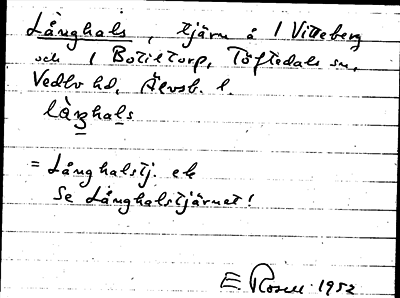 Långhals, tjärn å 1 Vitteberg
och 1 Botiltorp, Töftedals sn,
Vedbo hd, Älvsb. l.
làŋhals
= Långhalstj. ek
Se Långhalstjärnet!
E. Rosell 1952